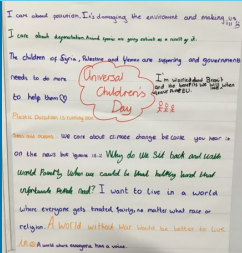 I care about pollution. It's damaging the enviroment and making us ill
I care about deforestation. Animal species are going extinct as a result of it.
The children of Syria, Palestine and Yemen are suffering and government
needs to do more
to help them
Universal
Children's
Day
I'm worried about Brexit
and the benefits we will
when
leave
EU.
Plastic Pollution is
We care about climate change because you hear it
on the news but
Why do we sit back and watch
world Poverty when we could
help
unfortunate
need? I want to live in a world
where everyone gets treated fairly, no matter what race or
religion. A world without war would be better to live
in. A world where everyone has a voice.